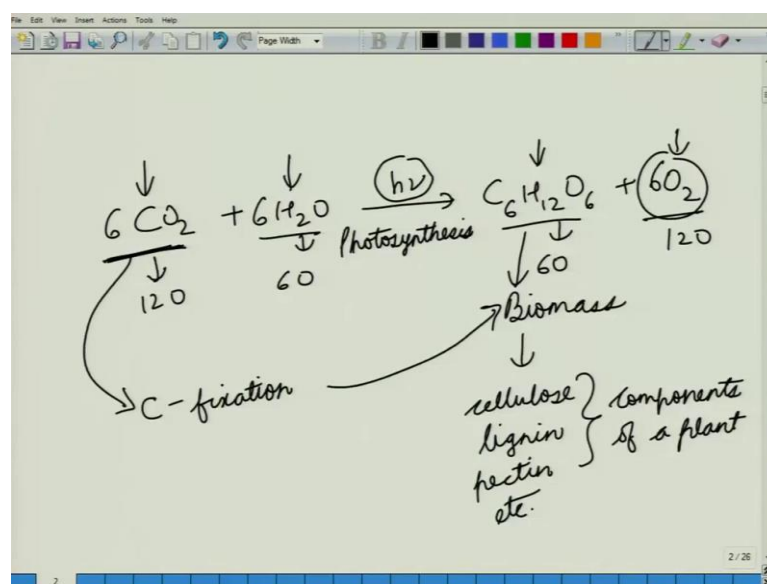 File Edit View Insert Actions Tools Help
Page Width B I "
6 CO₂ + 6H₂O hν C₆H₁₂O₆ + 6O₂
Photosynthesis
12O 6O 6O 12O
Biomass
C - fixation
cellulose
lignin
pectin
etc.
components
of a plant
2 / 26
2